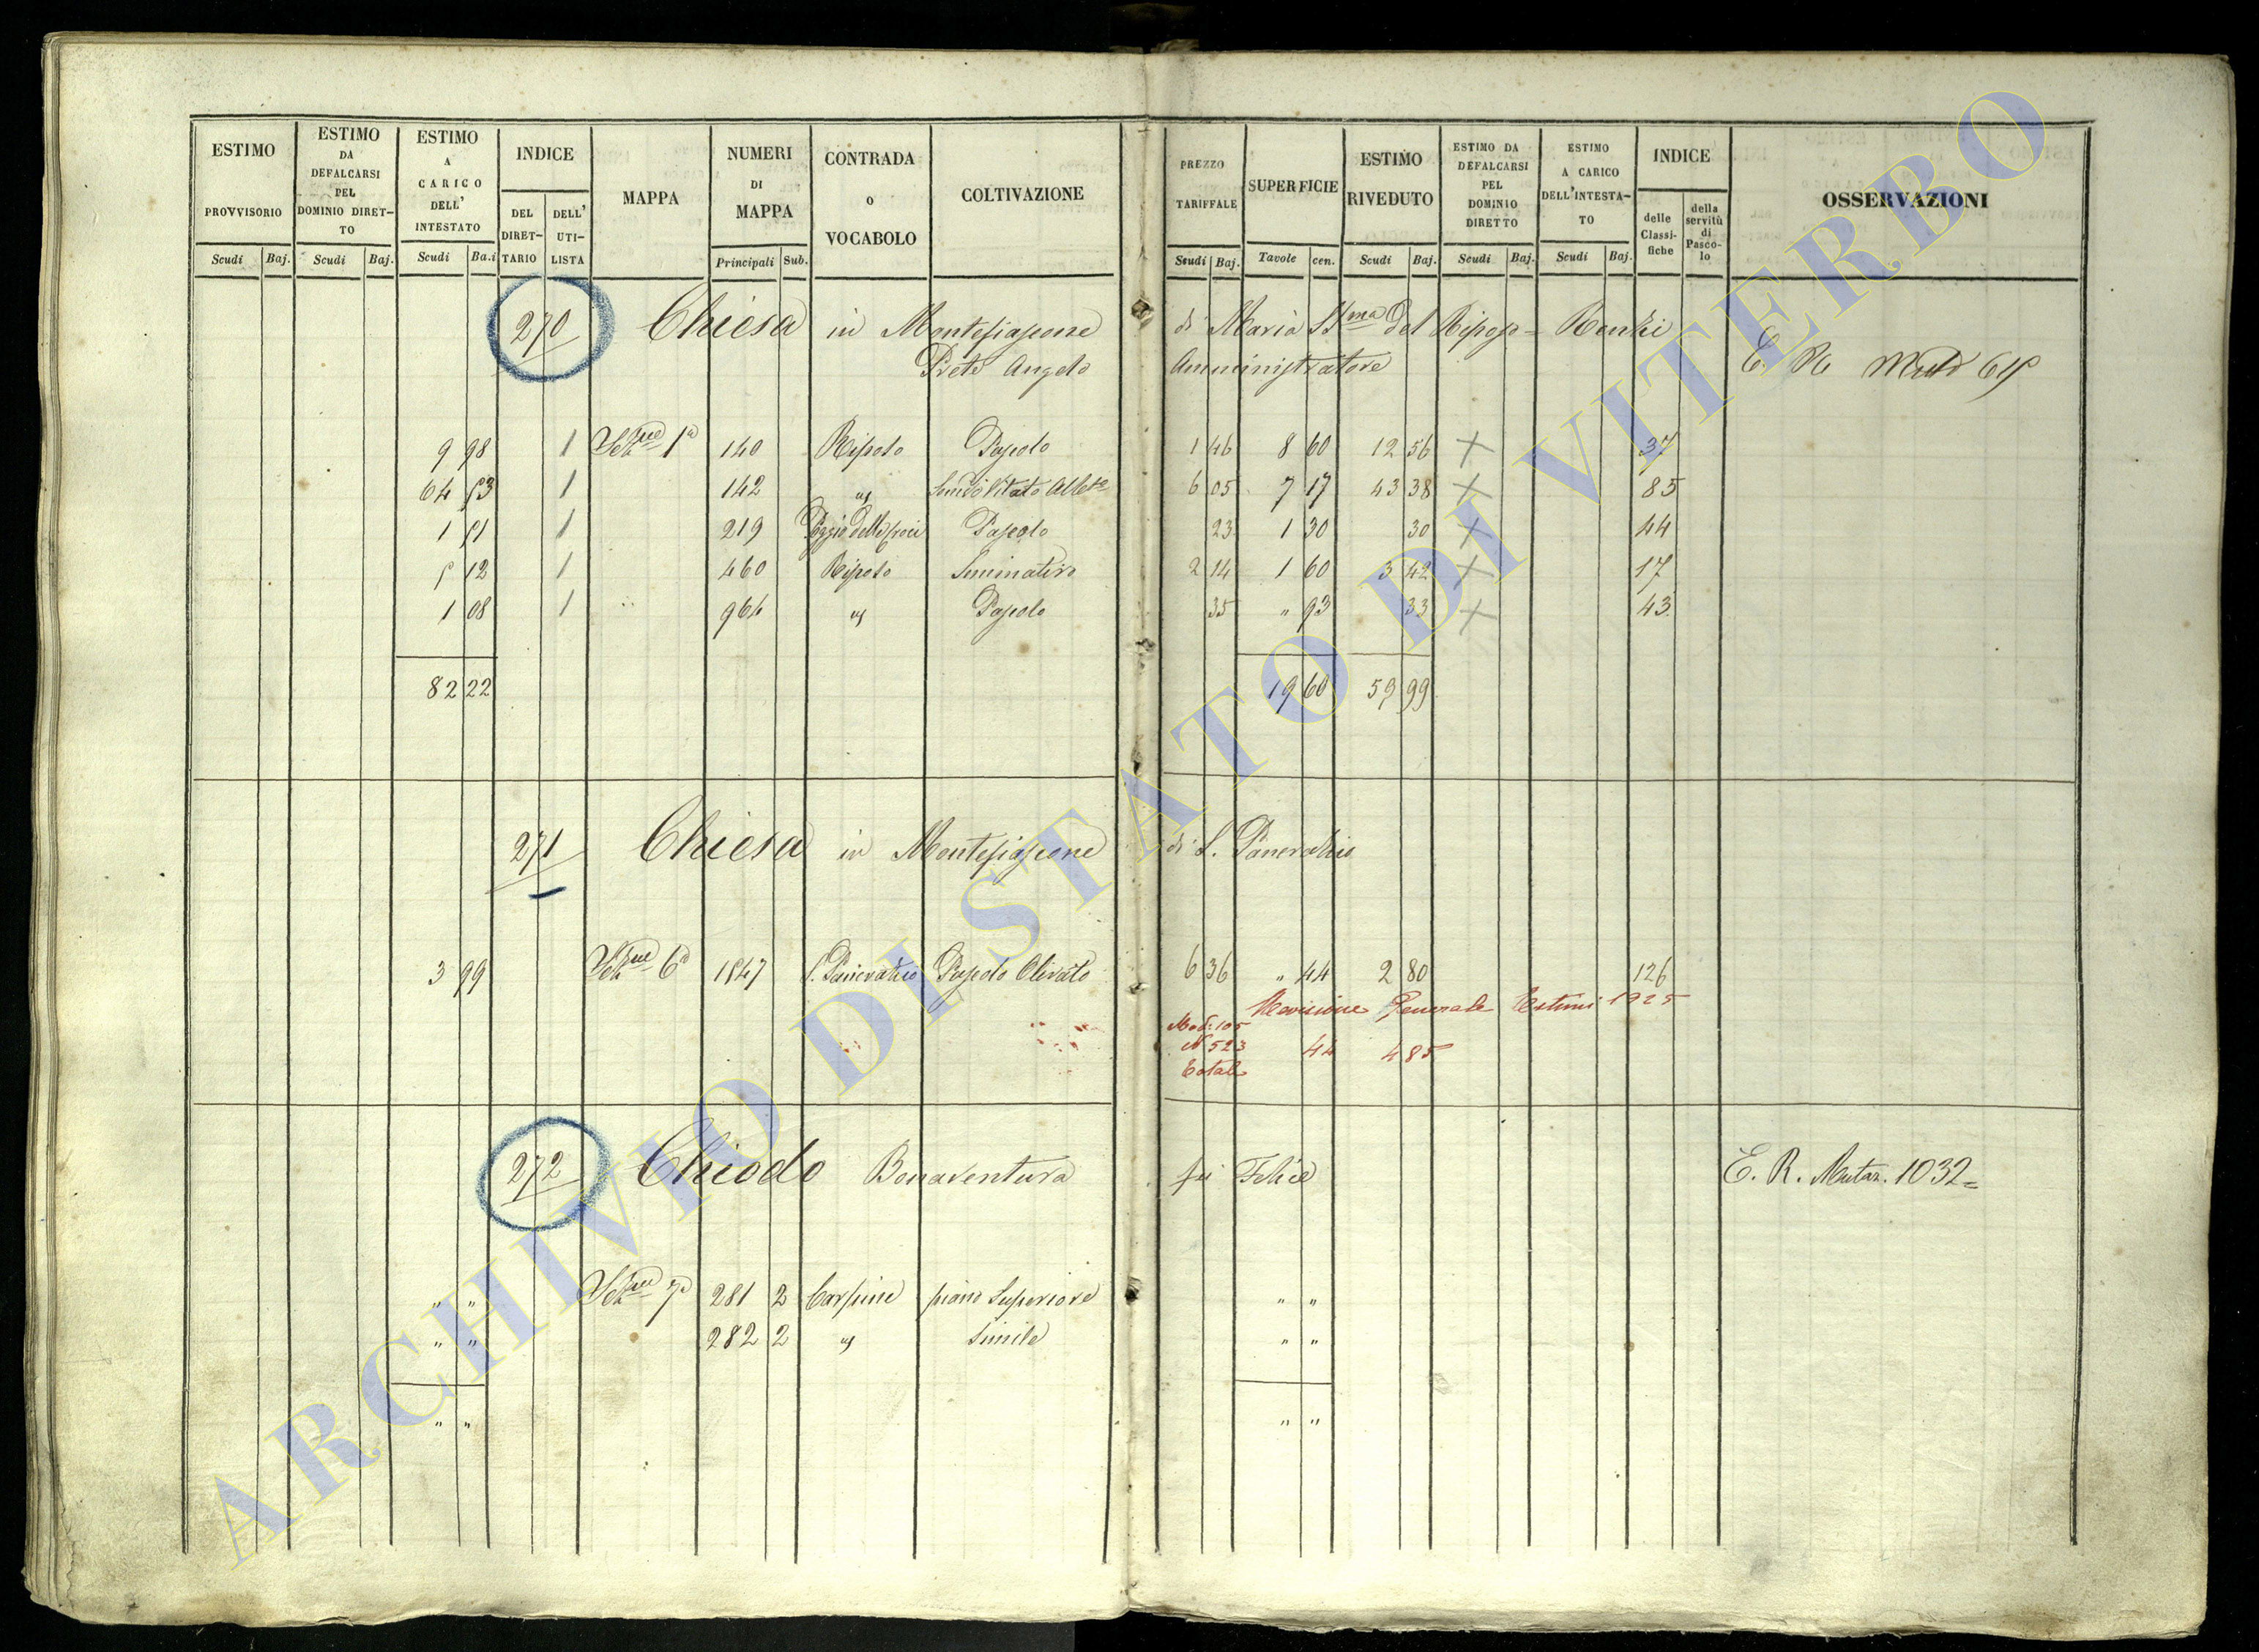 ESTIMO PROVVISORIO Scudi Baj.
ESTIMO DA DEFALCARSI PEL DOMINIO DIRET-TO Scudi Baj.
ESTIMO A CARICO DELL' INTESTATO Scudi Ba.i
INDICE DEL DIRET-TARIO DELL' UTI-LISTA
MAPPA
NUMERI DI MAPPA Principali Sub.
CONTRADA O VOCABOLO
COLTIVAZIONE
PREZZO TARIFFALE Scudi Baj.
SUPERFICIE Tavole cen.
ESTIMO RIVEDUTO Scudi Baj.
ESTIMO DA DEFALCARSI PEL DOMINIO DIRETTO Scudi Baj.
ESTIMO A CARICO DELL'INTESTA-TO Scudi Baj.
INDICE delle Classi-fiche della servitù di Pasco-lo
OSSERVAZIONI
270 Chiesa in Montefiascone di Maria SSma del Riposo - Renzi
Prete Angelo Amministratore
E. R.
9 98 1 Sezne 1a 140 Riposo Pascolo 1 46 8 60 12 56 X 37
64 53 1 142 " Semvo Vitato Albto 6 05 7 17 43 38 X 85
1 51 1 219 Poggio della Croce Pascolo 23 1 30 30 X 44
5 12 1 460 Riposo Seminativo 2 14 1 60 3 42 X 17
1 08 1 964 " Pascolo 35 " 93 33 X 43
82 22 19 60 59 99
271 Chiesa in Montefiascone di S. Pancrazio
3 99 Sezne 6a 1847 S. Pancrazio Pascolo Olivato 6 36 " 44 2 80 126
Revisione Generale Estimi 1925
Mod: 105
N 523 44 4 85
Totale
272 Chiodo Bonaventura fu Felice E. R. Mutaz. 1032=
" " Sezne 7a 281 2 Carpine piano Superiore " "
" " 282 2 " Simile " "
" " " "
ARCHIVIO DI STATO DI VITERBO